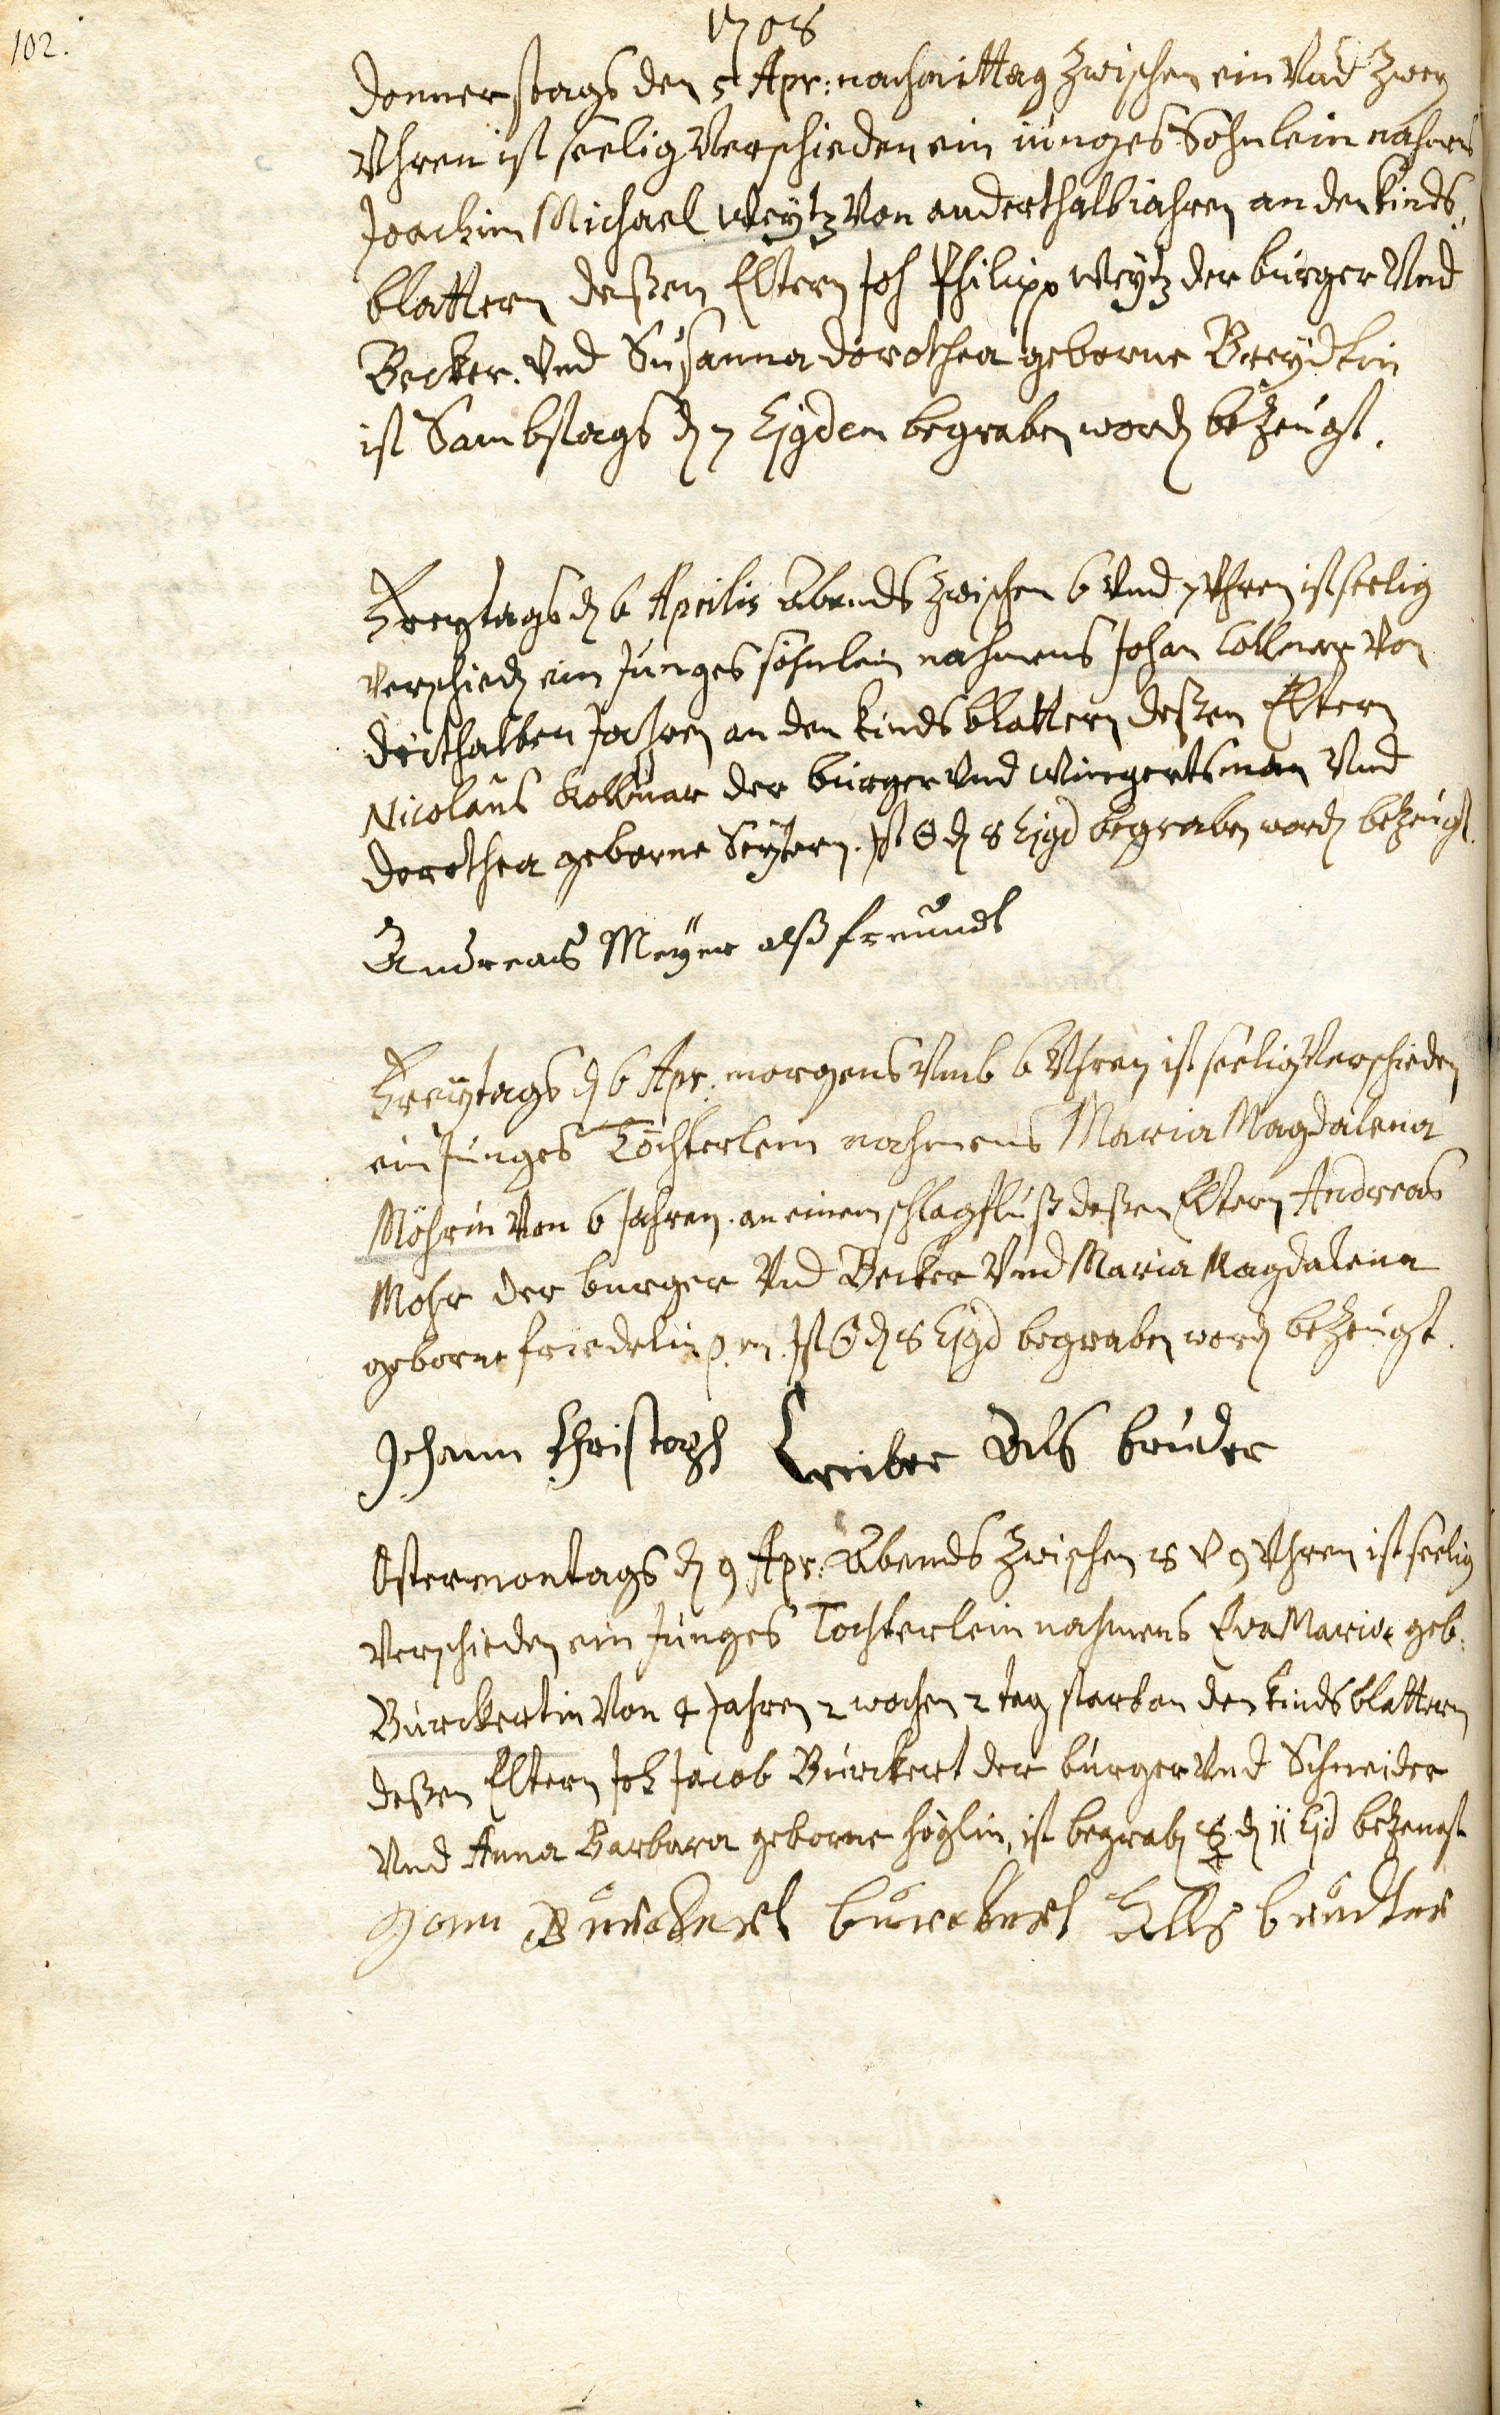 102.
1708
Donnerstags den 5 Apr: nachmittag zwischen ein Vnd zwey
Vhren ist seelig Verschieden ein iunges Söhnlein nahmens
Joachim Michael Weytz Von anderthalb iahren an den Kinds
blattern deßen Eltern Joh Philipp Weytz der burger Vnd
Becker. Vnd Susanna dorothea geborne
ist Sambstags d 7 Ejgdem begraben word bezeugt.
Freytags d 6 Aprilis Abends zwischen 6 Vnd 7 Vhren ist seelig
verschied ein Junges söhnlein nahmens Johan Collmar Von
dritthalben Jahren an den kindsblattern deßen Eltern
Nicolaus Kollmar der burger Vnd Wingertsman Vnd
dorothea geborne . Ist ☉ d 8 Ejgd begraben word bezeugt.
Andreas Meyer alß freundt
Freytags d 6 Apr. morgens Vmb 6 Vhren ist seelig Verschieden
ein Junges Töchterlein nahmens Maria Magdalena
Möhrin Von 6 Jahren. an einem schlagfluß deßen Eltern Andreas
Mohr der burger Vnd Becker Vnd Maria Magdalena
geborne . Ist ☉ d 8 Ejgd begraben word bezeugt.
Johann Christoph als bruder
Ostermontags d 9 Apr: Abends zwischen 8 V 9 Vhren ist seelig
Verschieden ein Junges Tochterlein nahmens Eva Maria geb:
Burckertin Von 4 Jahren 2 wochen 2 tag starb an den kindsblattern
deßen Eltern Joh Jacob Burckert der burger Vnd Schneider
Vnd Anna Barbara geborne höglin, ist begrab ☿ d 11 Ejd bezeugt
burckert Alls brudter